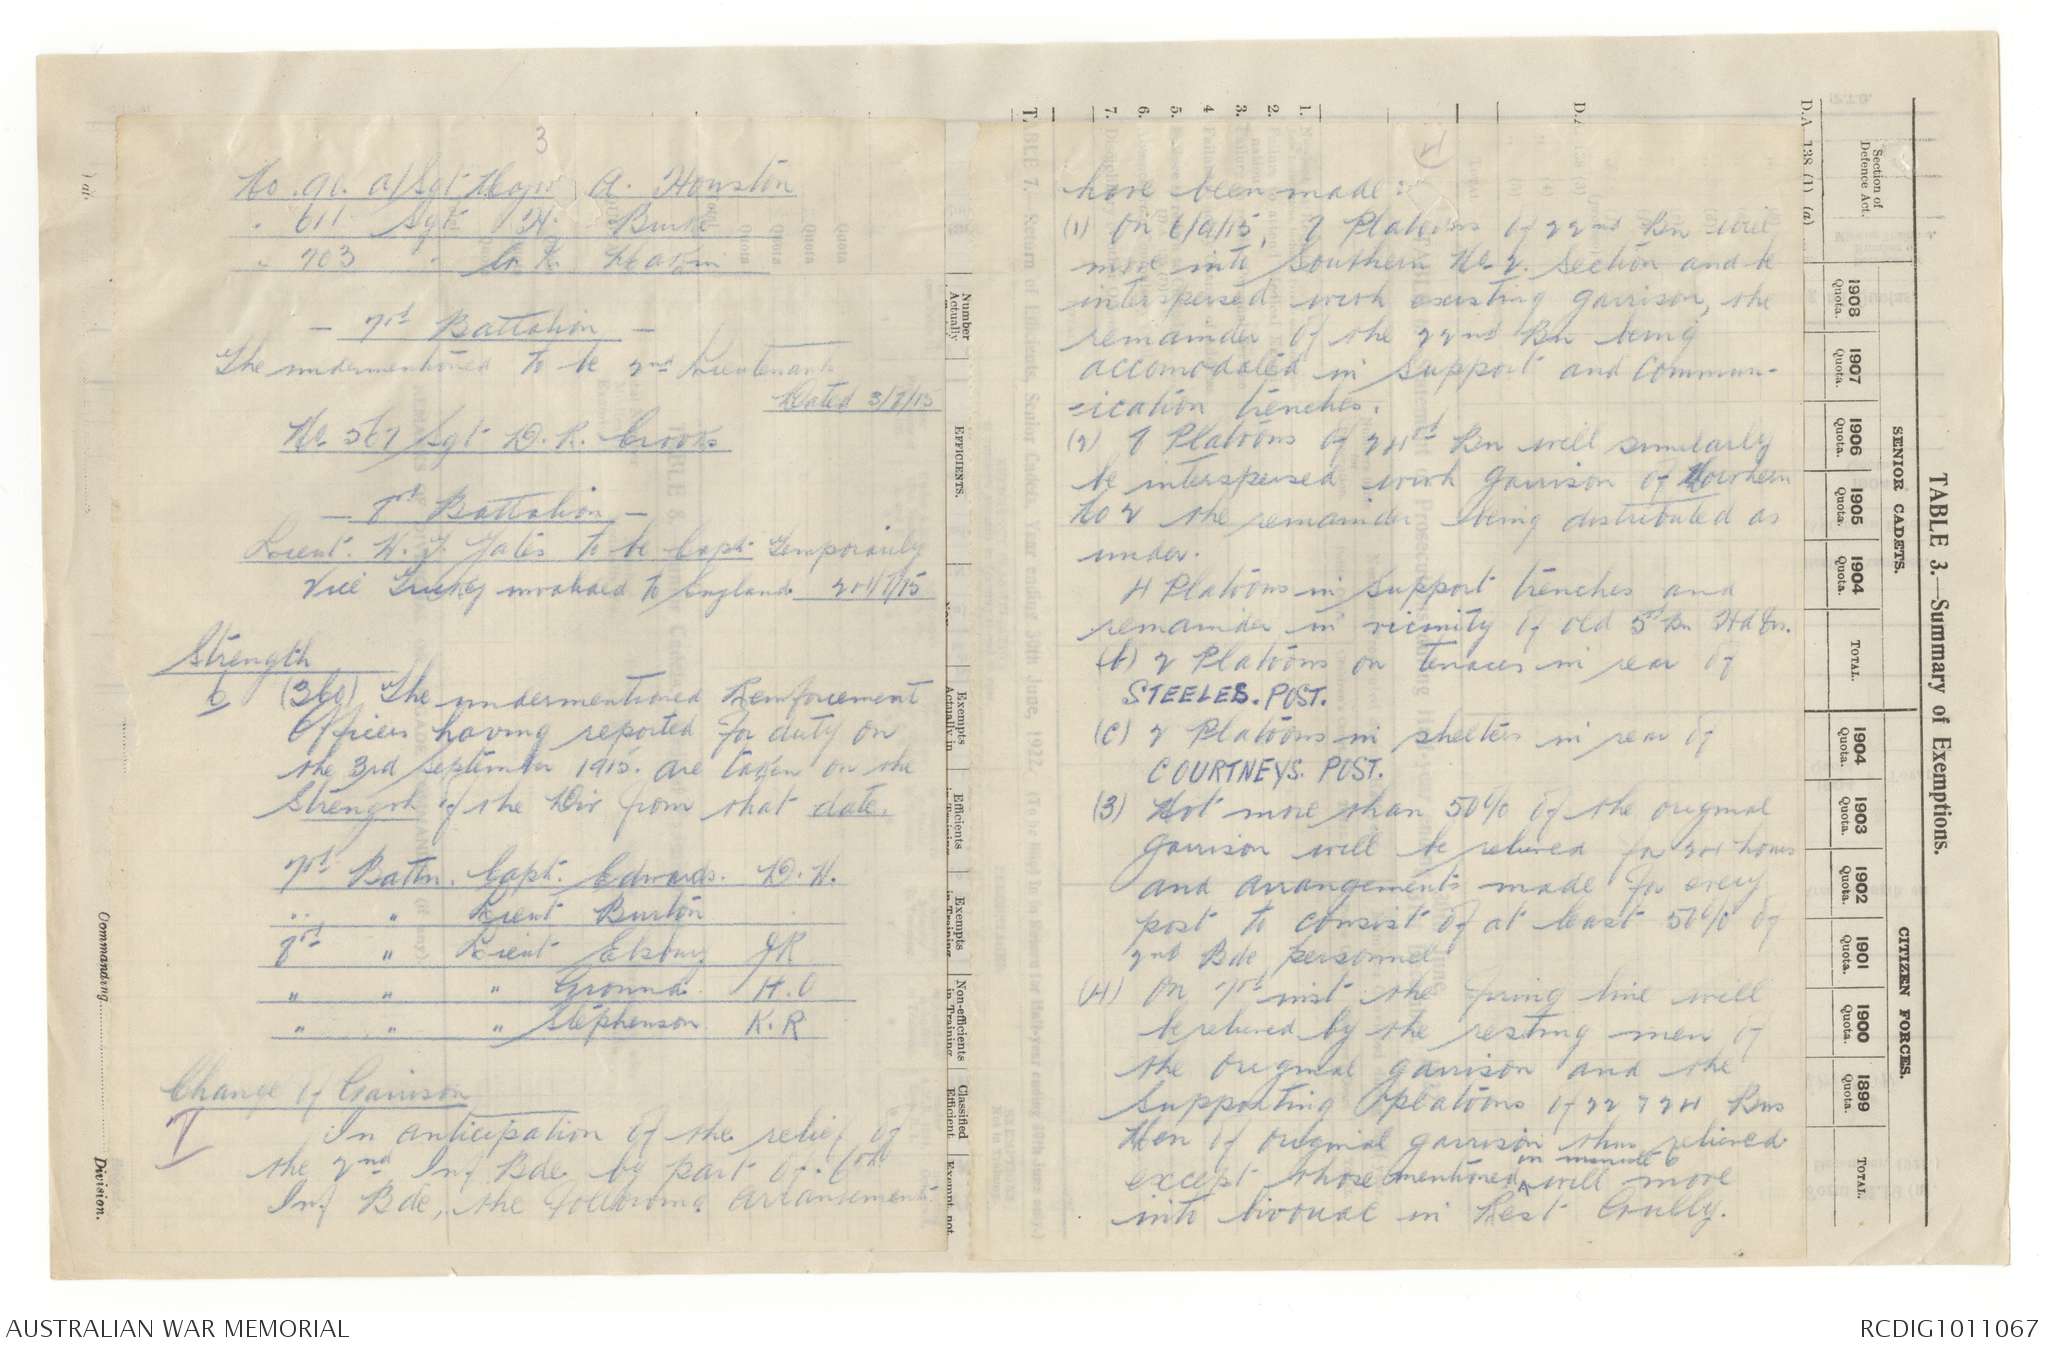 3
No. 90. a/Sgt Major A. Houston
" 611 Sgt H. Burke
" 703 " G. K.
— 7th Battalion —
The undermentioned to be 2nd Lieutenant
Dated 3/7/15
No. 567 Sgt D. R. Crooks
— 8th Battalion —
Lieut. H. J. Yates to be Capt. Temporarily
Vice invalided to England. 24/7/15
Strength
6 (360) The undermentioned Reinforcement
Officers having reported for duty on
the 3rd September 1915. are taken on the
Strength of the Div from that date.
7th Battn. Capt. Edwards. D. H.
" " Lieut Burton
8th " Lieut Elsbury JR
" " " H. O
" " " Stephenson K. R
Change of Garrison
7
In anticipation of the relief of
the 2nd Inf Bde by part of 6th
Inf Bde, the following arrangements
have been made:
(1) On 6/9/15, 7 Platoons of 22nd Bn will
move into Southern No 2. Section and be
interspersed with existing garrison, the
remainder of the 22nd Bn being
accomodated in Support and Commun-
-ication trenches.
(2) 7 Platoons of 24th Bn will similarly
be interspersed with garrison of Northern
No 2 the remainder being distributed as
under.
4 Platoons in Support trenches and
remainder in vicinity of old 5th Bn Hd Qrs.
(b) 2 Platoons on terraces in rear of
STEELES. POST.
(c) 2 Platoons in shelters in rear of
COURTNEYS. POST.
(3) Not more than 50% of the original
garrison will be relieved for 24 hours
and arrangements made for every
post to consist of at least 50% of
2nd Bde personnel
(4) On 7th inst the firing line will
be relieved by the resting men of
the original garrison and the
Supporting platoons of 22 & 24 Bns
Men of original garrison thus relieved
except those mentioned in minute 6 will move
into bivouac in Rest Gully.
TABLE 3.—Summary of Exemptions.
SENIOR CADETS.
CITIZEN FORCES.
Section of
Defence Act.
1908
Quota.
1907
Quota.
1906
Quota.
1905
Quota.
1904
Quota.
TOTAL.
1904
Quota.
1903
Quota.
1902
Quota.
1901
Quota.
1900
Quota.
1899
Quota.
TOTAL.
D.A. 138 (1) (a)
1.
2.
3.
4
5.
6.
7.
Number
Actually
EFFICIENTS.
Exempts
Actually in
Efficients
in Training
Exempts
in Training
Non-efficients
in Training
Classified
Efficient
Exempt, not
Commanding
Division.
AUSTRALIAN WAR MEMORIAL
RCDIG1011067